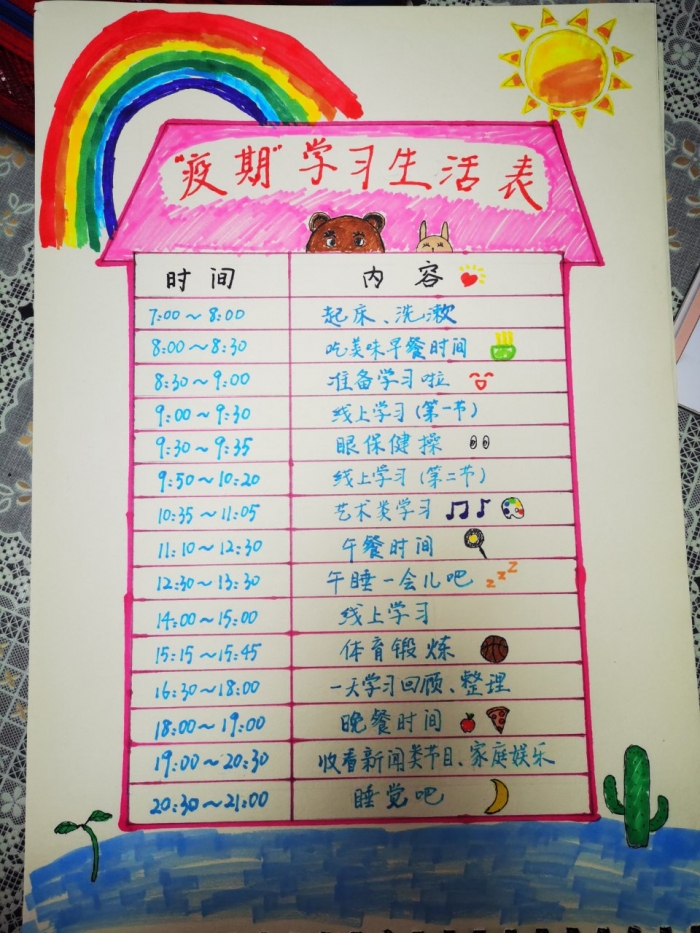 “疫期”学习生活表
时间 内容
7:00～8:00 起床、洗漱
8:00～8:30 吃美味早餐时间
8:30～9:00 准备学习啦
9:00～9:30 线上学习(第一节)
9:30～9:35 眼保健操
9:50～10:20 线上学习(第二节)
10:35～11:05 艺术类学习
11:10～12:30 午餐时间
12:30～13:30 午睡一会儿吧
14:00～15:00 线上学习
15:15～15:45 体育锻炼
16:30～18:00 一天学习回顾、整理
18:00～19:00 晚餐时间
19:00～20:30 收看新闻类节目、家庭娱乐
20:30～21:00 睡觉吧